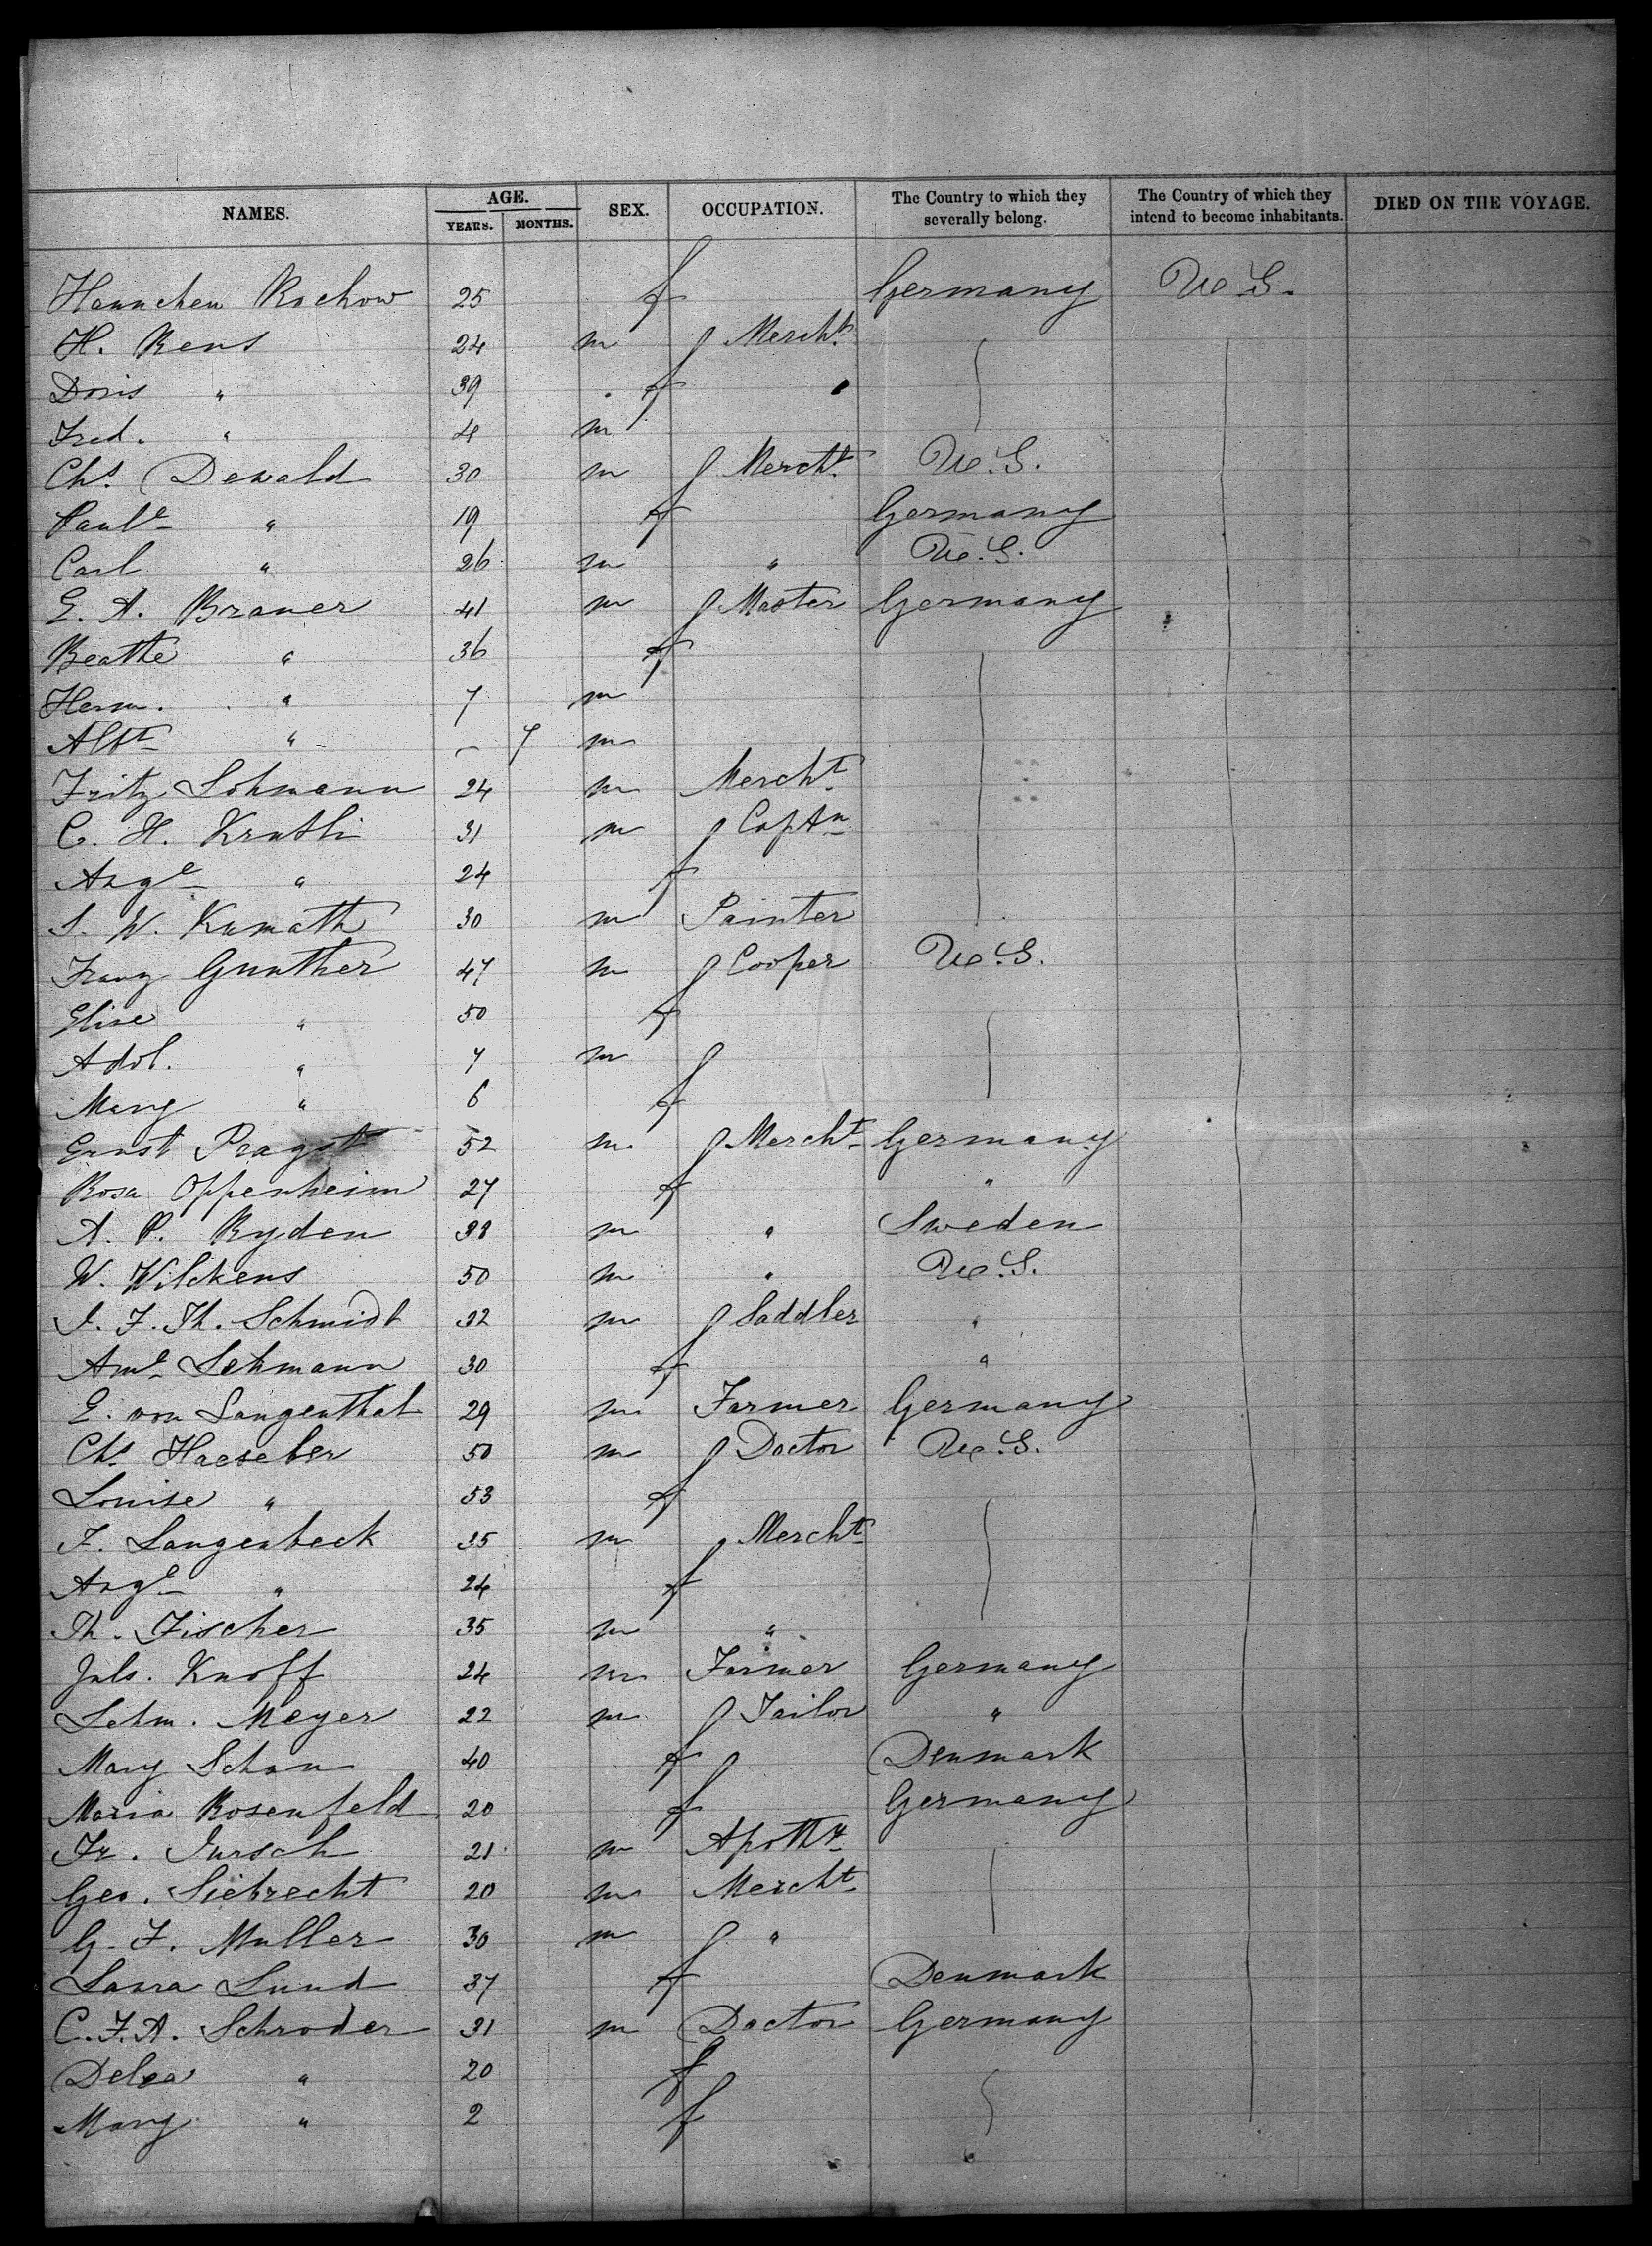 NAMES. AGE. SEX. OCCUPATION. The Country to which they severally belong. The Country of which they intend to become inhabitants. DIED ON THE VOYAGE.
YEARS. MONTHS.
Hannchen Rochow 25 f Germany U.S.
H. Rens 24 m Mercht.
Doris " 39 f
Fred. " 4 m
Chs. Dewald 30 m Mercht. U.S.
Paule " 19 f Germany
Carl " 26 m " U.S.
E. A. Braner 41 m Master Germany
Beathe " 36 f
Herm. " 7 m
Albt " - 7 m
Fritz Lohmann 24 m Mercht
C. H. Kruthi 31 m Captn
Auge " 24 f
S. W. Kumath 30 m Painter
Franz Gunther 47 m Cooper U.S.
Elise " 50 f
Adol. " 7 m
Mary " 6 f
Ernst Pragst 52 m Mercht Germany
Rosa Oppenheim 27 f "
A. P. Ryden 38 m " Sweden
W. Wilckens 50 m " U.S.
J. F. Th. Schmidt 32 m Saddler "
Ame Lehmann 30 f "
E. von Langenthal 29 m Farmer Germany
Chs Haeseler 50 m Doctor U.S.
Louise " 53 f
F. Langenbeck 35 m Mercht
Auge " 24 f
Th. Fischer 35 m "
Juls. Knoff 24 m Farmer Germany
Lehm. Meyer 22 m Tailor "
Mary Schon 40 f Denmark
Maria Rosenfeld 20 f Germany
Fr. Jursch 21 m Apothy
Geo. Siebrecht 20 m Mercht
G. F. Muller 30 m "
Laura Lund 37 f Denmark
C. F. A. Schroder 31 m Doctor Germany
" 20 f
Mary " 2 f